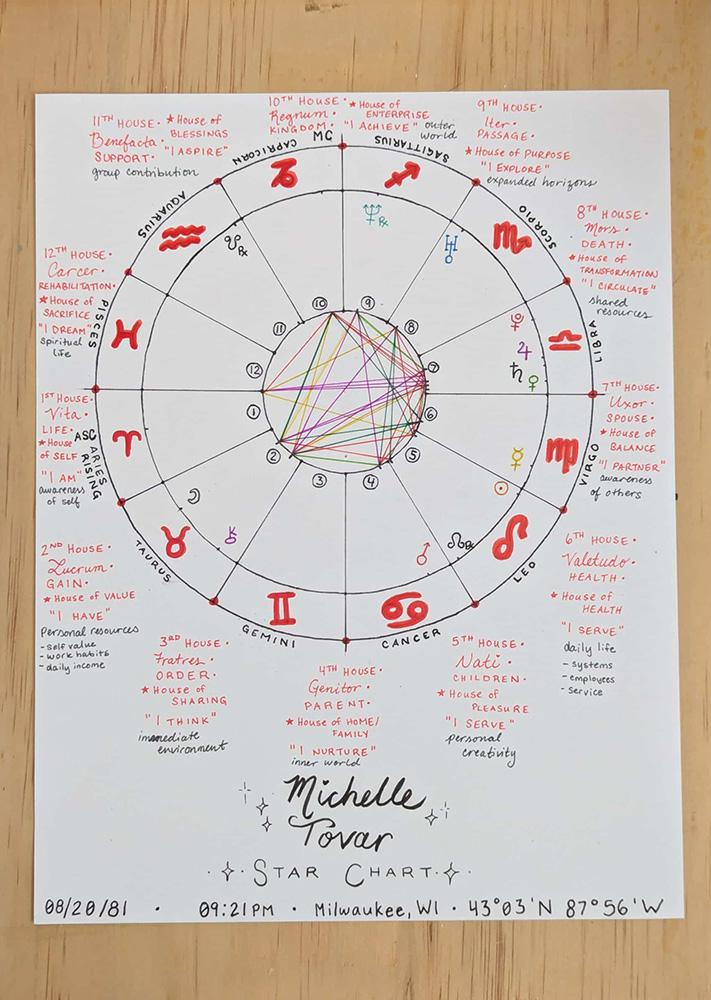 10TH HOUSE •
Regnum •
KINGDOM •
★ House of
ENTERPRISE
"I ACHIEVE" outer
world
9TH HOUSE •
Iter •
PASSAGE •
★ House of PURPOSE
"I EXPLORE"
expanded horizons
11TH HOUSE •
Benefacta •
SUPPORT •
★ House of
BLESSINGS
"I ASPIRE"
group contribution
MC
CAPRICORN
SAGITTARIUS
AQUARIUS
SCORPIO
8TH HOUSE •
Mors •
DEATH •
★ House of
TRANSFORMATION
"I CIRCULATE"
shared
resources
12TH HOUSE •
Carcer •
REHABILITATION •
★ House of
SACRIFICE
"I DREAM"
spiritual
life
PISCES
LIBRA
10
9
11
8
12
7
1
6
2
5
3
4
1ST HOUSE •
Vita •
LIFE •
★ House
of SELF
"I AM"
awareness
of self
ASC
ARIES
RISING
7TH HOUSE •
Uxor •
SPOUSE •
★ House of
BALANCE
"I PARTNER"
awareness
of others
VIRGO
2ND HOUSE •
Lucrum •
GAIN •
★ House of VALUE
"I HAVE"
Personal resources
- self value
- work habits
- daily income
TAURUS
LEO
6TH HOUSE •
Valetudo •
HEALTH •
★ House of
HEALTH
"I SERVE"
daily life
- systems
- employees
- service
GEMINI
CANCER
3RD HOUSE •
Fratres •
ORDER •
★ House of
SHARING
"I THINK"
immediate
environment
4TH HOUSE •
Genitor •
PARENT •
★ House of HOME/
FAMILY
"I NURTURE"
inner world
5TH HOUSE •
Nati •
CHILDREN •
★ House of
PLEASURE
"I SERVE"
personal
creativity
Michelle
Tovar
STAR CHART
08/20/81 • 09:21PM • Milwaukee, WI • 43°03'N 87°56'W